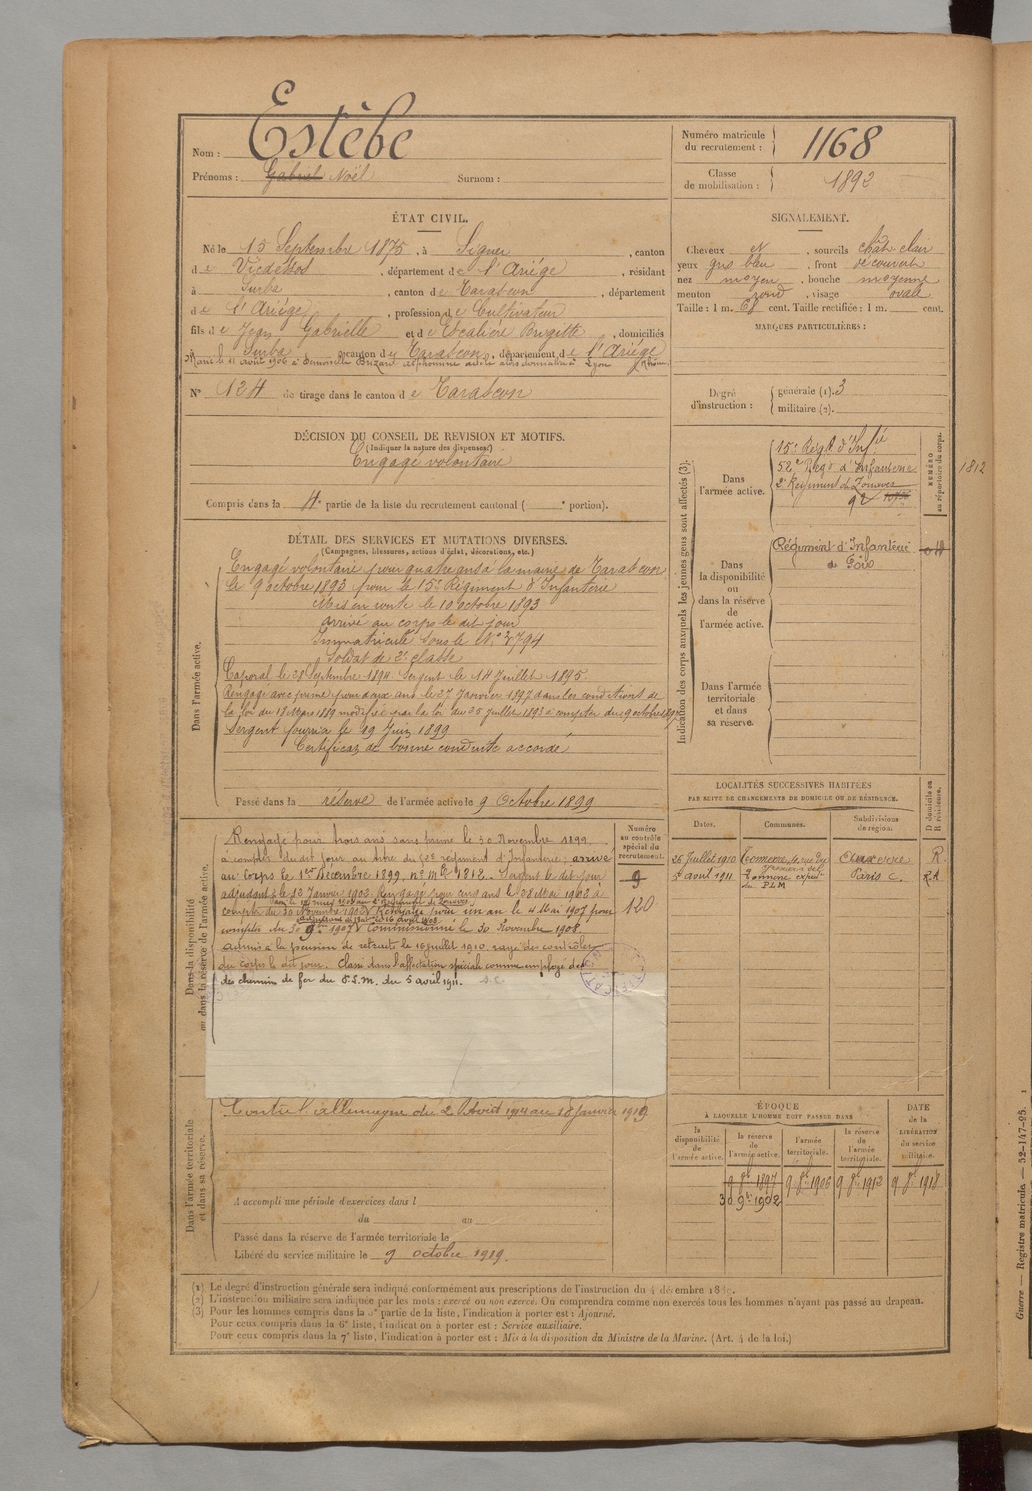 Nom : Estèbe
Prénoms : Gabriel Noël Surnom :
Numéro matricule du recrutement : 1168
Classe de mobilisation : 1892
ÉTAT CIVIL.
Né le 15 Septembre 1875, à Siguer, canton
de Vicdessos, département de l'Ariège, résidant
à Surba, canton de Tarascon, département
de l'Ariège, profession de Cultivateur
fils de Jean Gabrielle et de Escalière Brigitte, domiciliés
à Surba, canton de Tarascon, département de l'Ariège
Marié le 11 août 1906 à Demoiselle Brizard alors domiciliée à Lyon Rhône
N° 124 de tirage dans le canton de Tarascon
SIGNALEMENT.
Cheveux et, sourcils chât clair
yeux gris bleu, front découvert
nez moyen, bouche moyenne
menton rond, visage ovale
Taille : 1 m. 68 cent. Taille rectifiée : 1 m. cent.
MARQUES PARTICULIÈRES :
Degré d'instruction : générale (1). 3
militaire (2).
DÉCISION DU CONSEIL DE REVISION ET MOTIFS.
(Indiquer la nature des dispenses.)
Engagé volontaire
Compris dans la 4e partie de la liste du recrutement cantonal ( e portion).
DÉTAIL DES SERVICES ET MUTATIONS DIVERSES.
(Campagnes, blessures, actions d'éclat, décorations, etc.)
Dans l'armée active.
Engagé volontaire pour quatre ans à la mairie de Tarascon
le 9 octobre 1893 pour le 15e Régiment d'Infanterie
Mis en route le 10 octobre 1893
arrivé au corps le dit jour
Immatriculé sous le N° 3794
Soldat de 2e classe
Caporal le 28 Septembre 1894. Sergent le 14 Juillet 1895
Rengagé avec prime pour deux ans le 27 Janvier 1897 dans les conditions de
la loi du 18 Mars 1889 modifiée par la loi du 25 Juillet 1893 à compter du 9 octobre 1897
Sergent fourrier le 19 Juin 1899
Certificat de bonne conduite accordé
Passé dans la réserve de l'armée active le 9 Octobre 1899
Indication des corps auxquels les jeunes gens sont affectés (3).
NUMÉRO au répertoire du corps.
Dans l'armée active.
15e Régt d'Infie
52e Régt d'Infanterie 1812
2e Régiment de Zouaves
Dans la disponibilité ou dans la réserve de l'armée active.
Régiment d'Infanterie
de Foix
Dans l'armée territoriale et dans sa réserve.
LOCALITÉS SUCCESSIVES HABITÉES
PAR SUITE DE CHANGEMENTS DE DOMICILE OU DE RÉSIDENCE.
Dates. Communes. Subdivisions de région. D domicile ou R résidence.
26 Juillet 1910 Auxerre R
5 avril 1911 du PLM Paris C.
Dans la disponibilité ou dans la réserve de l'armée active.
Numéro au contrôle spécial du recrutement.
9
120
Rengagé pour trois ans sans prime le 30 Novembre 1899
à compter du dit jour au titre du 52e régiment d'Infanterie; arrivé
au corps le 1er Décembre 1899, n° Mle 1812. Sergent le dit jour
adjudant le 23 Janvier 1902. Rengagé pour cinq ans le 28 Mai 1902 à
compter du 30 Novembre 1902. Rengagé pour un an le 4 Mai 1907 pour
compter du 30 9bre 1907. Commissionné le 30 Novembre 1908.
Admis à la pension de retraite le 16 juillet 1910, rayé des contrôles
du corps le dit jour. Classé dans l'affectation spéciale comme employé des
des chemins de fer du P.L.M. du 5 avril 1911. S.C.
Dans l'armée territoriale et dans sa réserve.
Contre l'Allemagne du 2 Août 1914 au 18 Janvier 1919
A accompli une période d'exercices dans l
du au
Passé dans la réserve de l'armée territoriale le
Libéré du service militaire le 9 octobre 1919.
ÉPOQUE
À LAQUELLE L'HOMME DOIT PASSER DANS
la disponibilité de l'armée active. la réserve de l'armée active. l'armée territoriale. la réserve de l'armée territoriale.
DATE de la LIBÉRATION du service militaire.
9 8bre 1897 9 8bre 1906 9 8bre 1912 9 8bre 1918
30 9bre 1902
(1) Le degré d'instruction générale sera indiqué conformément aux prescriptions de l'instruction du 4 décembre 1889.
(2) L'instruction militaire sera indiquée par les mots : exercé ou non exercé. On comprendra comme non exercés tous les hommes n'ayant pas passé au drapeau.
(3) Pour les hommes compris dans la 5e partie de la liste, l'indication à porter est : Ajourné.
Pour ceux compris dans la 6e liste, l'indication à porter est : Service auxiliaire.
Pour ceux compris dans la 7e liste, l'indication à porter est : Mis à la disposition du Ministre de la Marine. (Art. 4 de la loi.)
Guerre — Registre matricule. — 52-147-95.